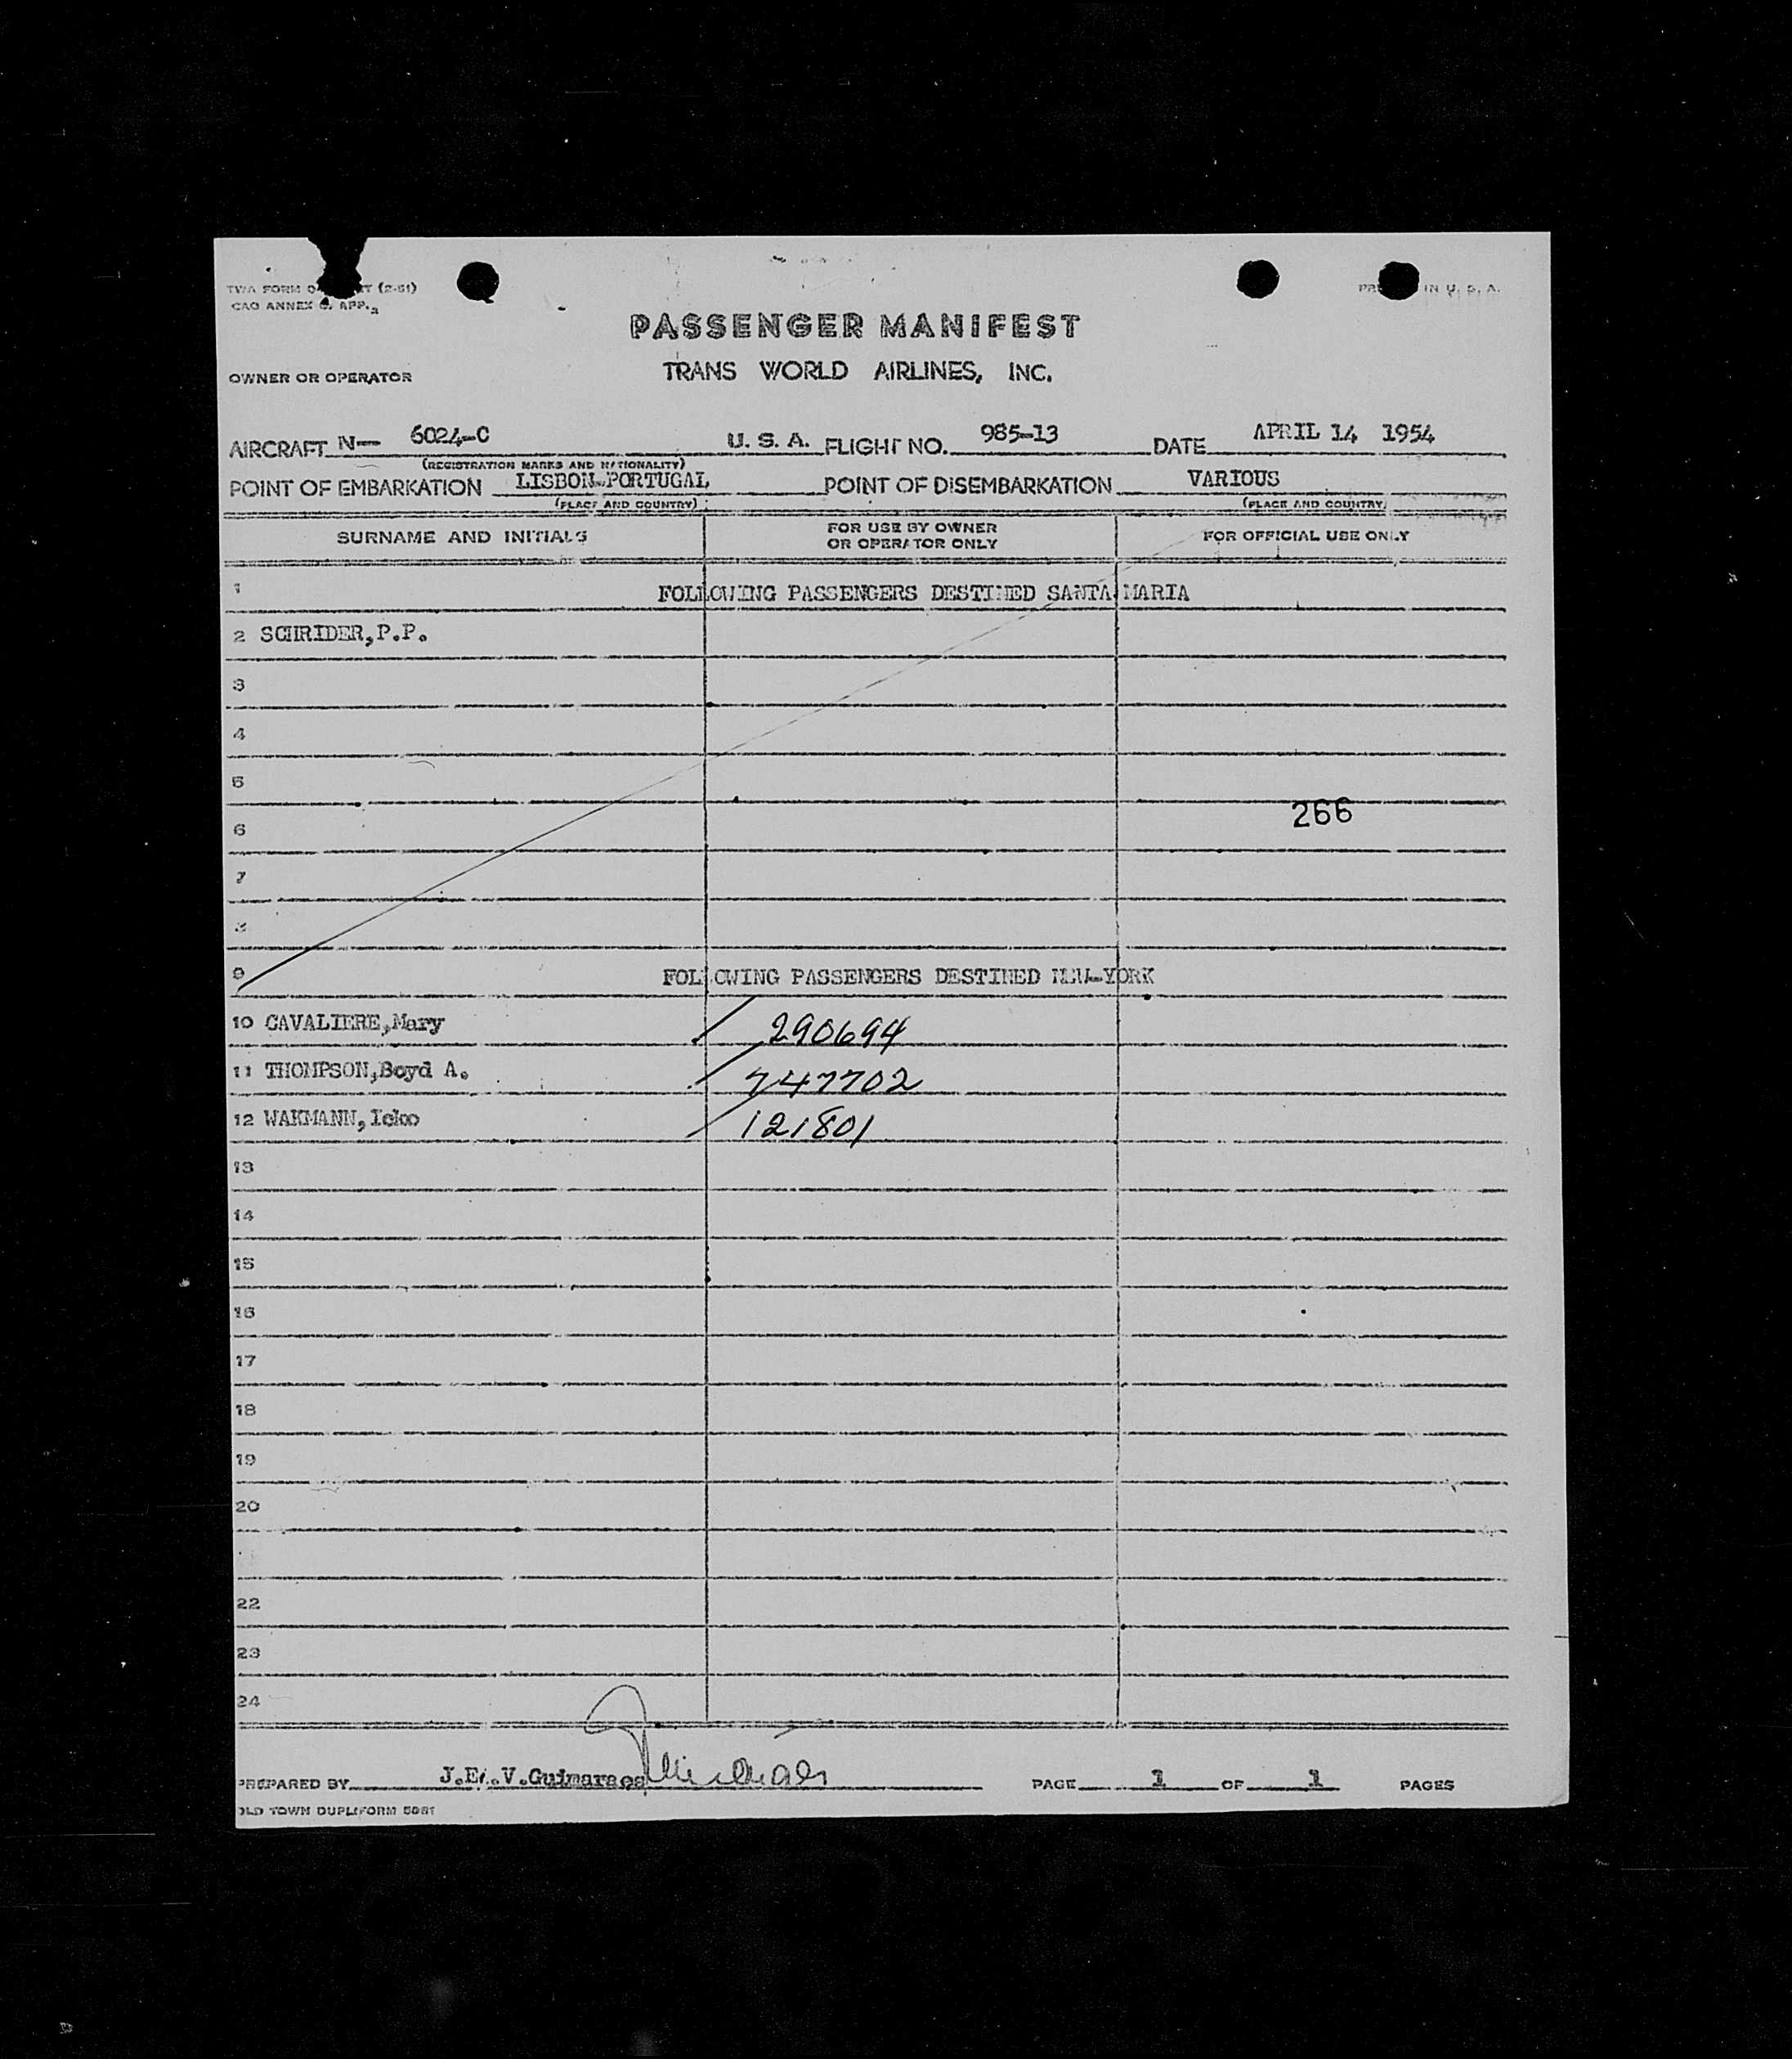 TWA FORM (2-51)
CAO ANNEX 9, APP. 2
IN U. S. A.
PASSENGER MANIFEST
OWNER OR OPERATOR TRANS WORLD AIRLINES, INC.
AIRCRAFT N— 6024-C U. S. A. FLIGHT NO. 985-13 DATE APRIL 14 1954
(REGISTRATION MARKS AND NATIONALITY)
POINT OF EMBARKATION LISBON-PORTUGAL POINT OF DISEMBARKATION VARIOUS
(PLACE AND COUNTRY) (PLACE AND COUNTRY)
SURNAME AND INITIALS FOR USE BY OWNER OR OPERATOR ONLY FOR OFFICIAL USE ONLY
1 FOLLOWING PASSENGERS DESTINED SANTA MARIA
2 SCHRIDER,P.P.
3
4
5
266
6
7
8
9 FOLLOWING PASSENGERS DESTINED NEW-YORK
10 CAVALIERE,Mary 290694
11 THOMPSON,Boyd A. 747702
12 WAKMANN, 121801
13
14
15
16
17
18
19
20
22
23
24
PREPARED BY J.E.V.Guimaraes PAGE 1 OF 1 PAGES
OLD TOWN DUPLIFORM